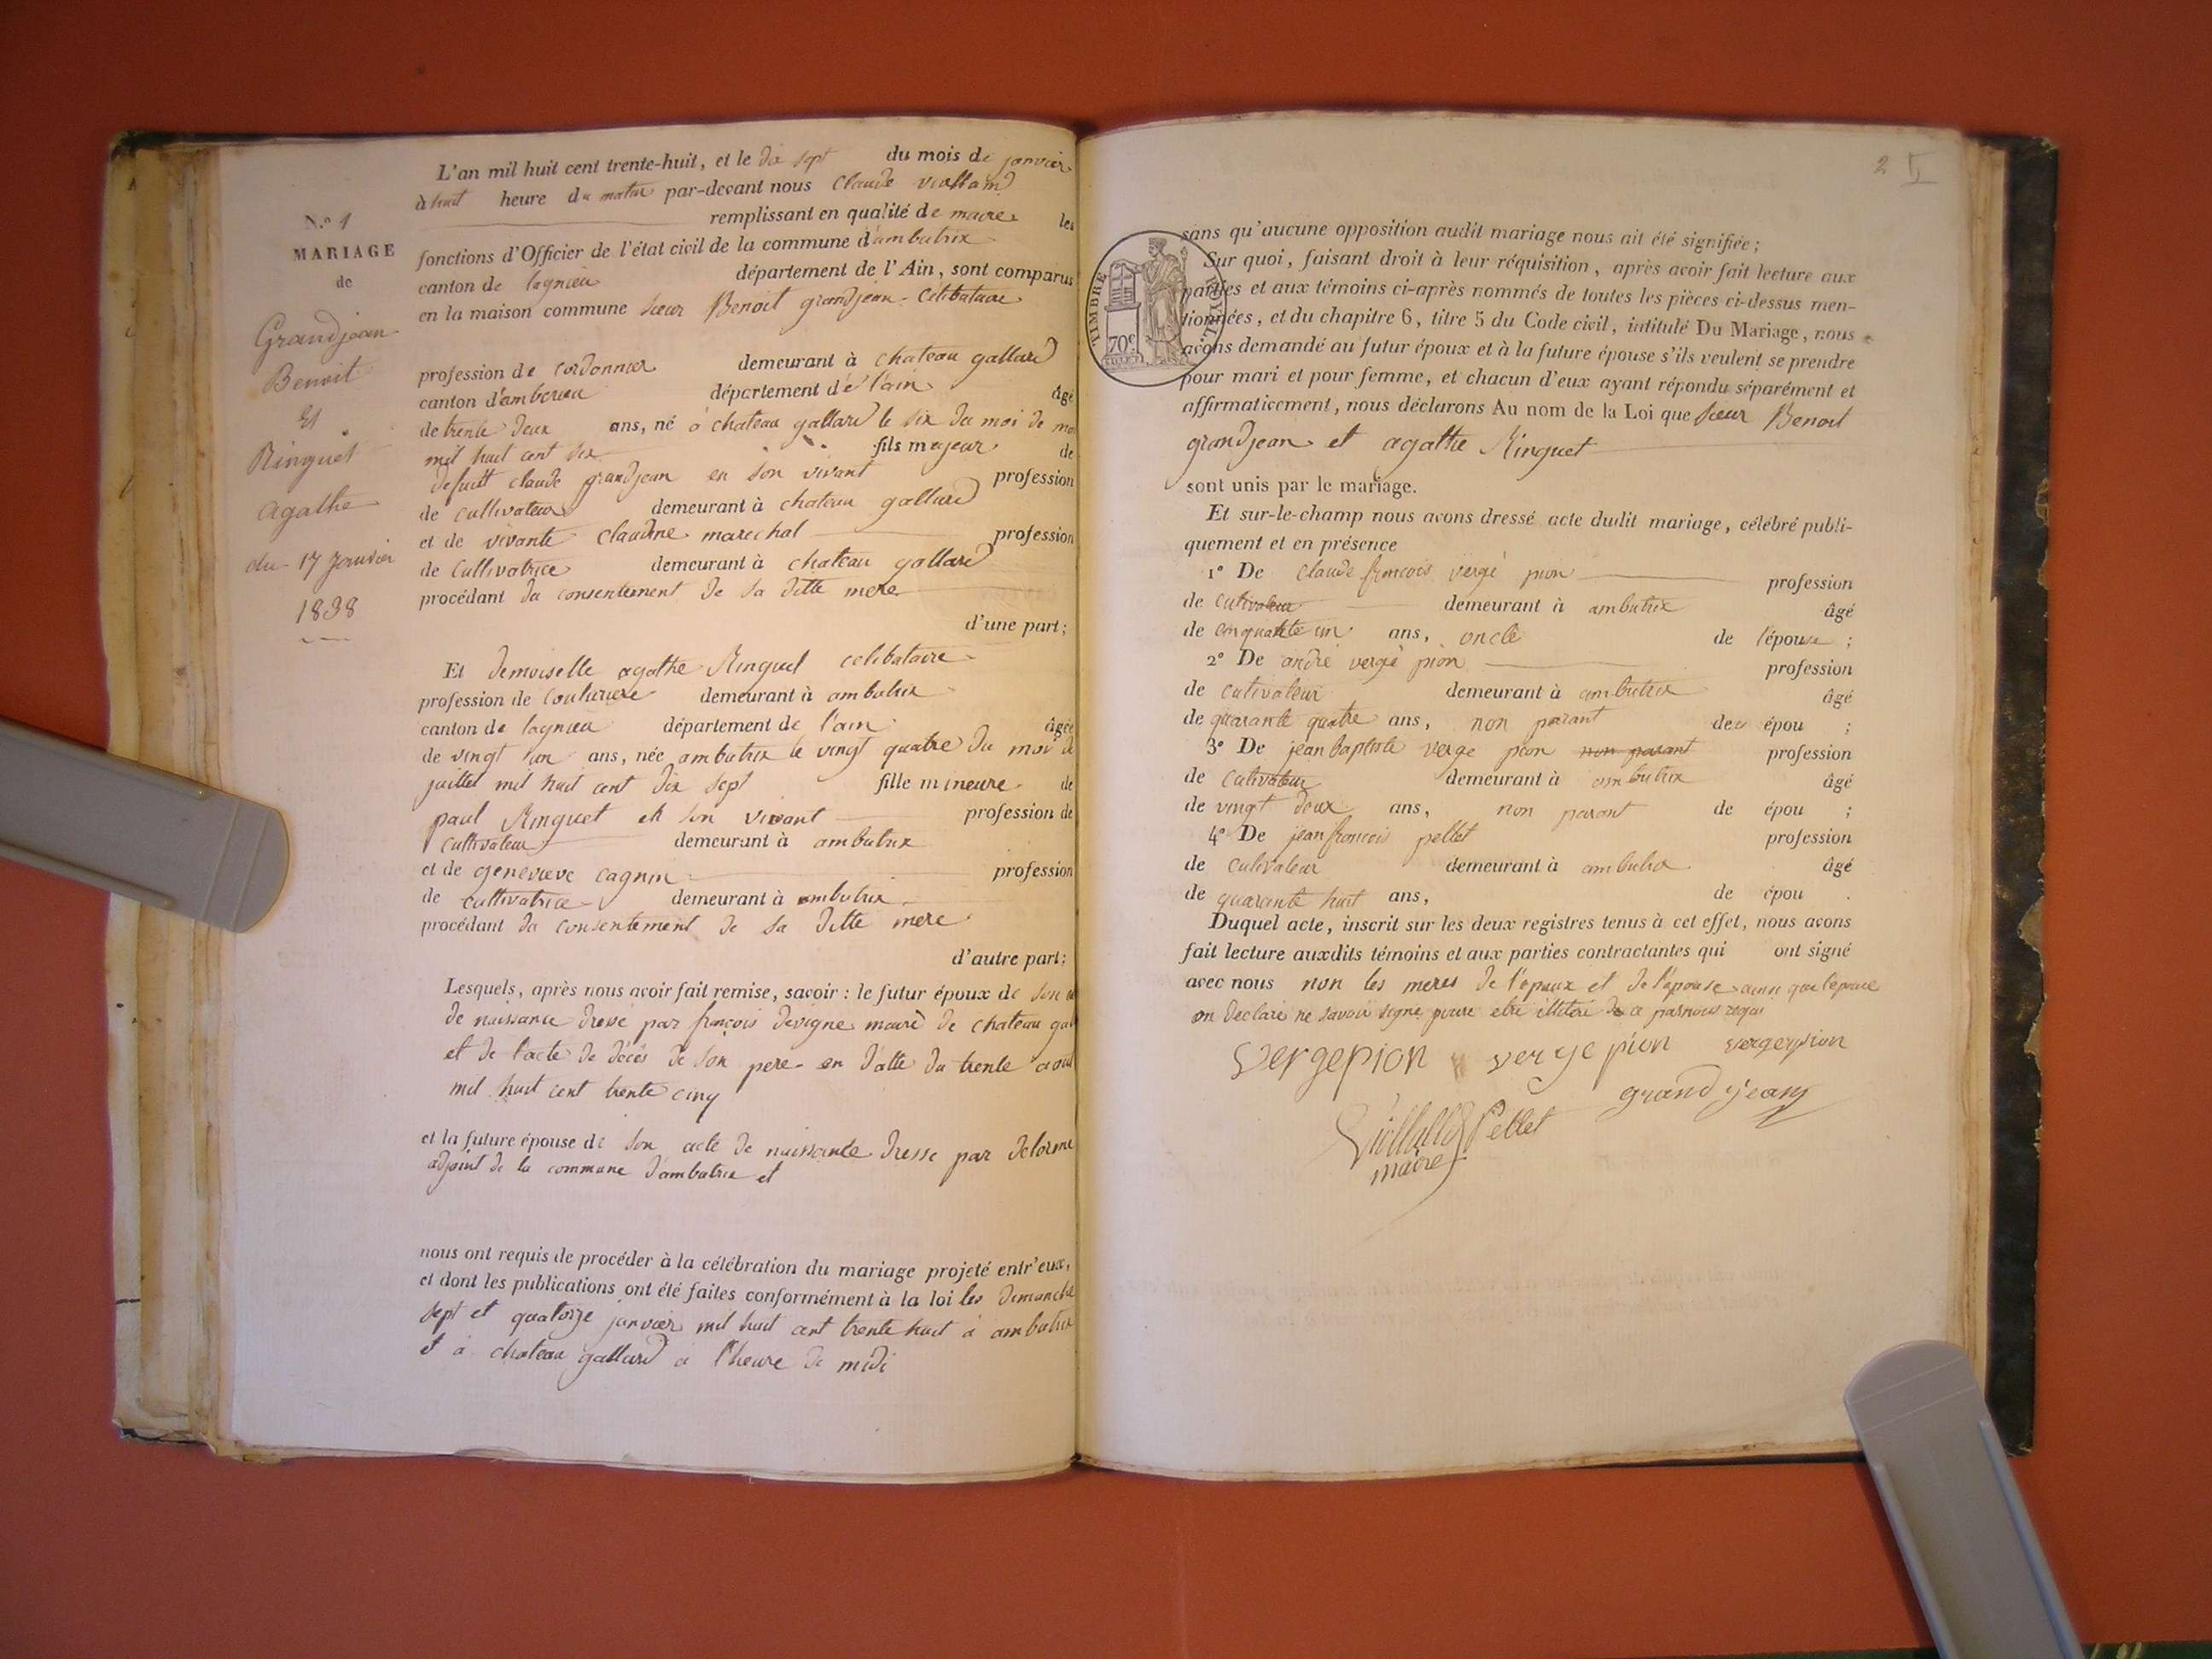 N.º 1
MARIAGE
de
Grandjean
Benoit
Et
Ringuet
agathe
du 17 Janvier
1838
L'an mil huit cent trente-huit, et le dix sept du mois de janvier
à huit heure du matin par-devant nous Claude
remplissant en qualité de maire les
fonctions d'Officier de l'état civil de la commune d'ambutrix
canton de lagnieu département de l'Ain, sont comparus
en la maison commune sieur Benoit grandjean celibataire
profession de cordonnier demeurant à chateau gallard
canton d'amberieu département de l'ain âgé
de trente deux ans, né à chateau gallard le six du moi de
mil huit cent six fils majeur de
defunt claude grandjean en son vivant profession
de cultivateur demeurant à chateau gallard
et de vivante claudine marechal profession
de cultivatrice demeurant à chateau gallard
procédant du consentement de sa ditte mere
d'une part;
Et demoiselle agathe Ringuet celibataire
profession de couturiere demeurant à ambutrix
canton de lagnieu département de l'ain âgée
de vingt un ans, née ambutrix le vingt quatre du moi de
juillet mil huit cent dix sept fille mineure de
paul Ringuet en son vivant profession de
cultivateur demeurant à ambutrix
et de genevieve cagnin profession
de cultivatrice demeurant à ambutrix
procédant du consentement de sa ditte mere
d'autre part;
Lesquels, après nous avoir fait remise, savoir: le futur époux de son
de naissance dressé par françois devigne maire de chateau gal
et de l'acte de décés de son pere en datte du trente aout
mil huit cent trente cinq
et la future épouse de son acte de naissance dresse par delorme
adjoint de la commune d'ambutrix et
nous ont requis de procéder à la célébration du mariage projeté entr'eux,
et dont les publications ont été faites conformément à la loi les dimanche
sept et quatorze janvier mil huit cent trente huit à ambutrix
et à chateau gallard à l'heure de midi
2
TIMBRE ROYAL
70c
sans qu'aucune opposition audit mariage nous ait été signifiée;
Sur quoi, faisant droit à leur réquisition, après avoir fait lecture aux
parties et aux témoins ci-après nommés de toutes les pièces ci-dessus men-
tionnées, et du chapitre 6, titre 5 du Code civil, intitulé Du Mariage, nous
avons demandé au futur époux et à la future épouse s'ils veulent se prendre
pour mari et pour femme, et chacun d'eux ayant répondu séparément et
affirmativement, nous déclarons Au nom de la Loi que sieur Benoit
grandjean et agathe Ringuet
sont unis par le mariage.
Et sur-le-champ nous avons dressé acte dudit mariage, célébré publi-
quement et en présence
1º De Claude francois vergé pion profession
de cultivateur demeurant à ambutrix âgé
de cinquante un ans, oncle de l'épouse;
2º De andré vergé pion profession
de cutivateur demeurant à ambutrix âgé
de quarante quatre ans, non parant des épou ;
3º De jean baptiste verge pion non parant profession
de cutivateur demeurant à ambutrix âgé
de vingt deux ans, non parant de épou ;
4º De jean francois pellet profession
de cultivateur demeurant à ambutrix âgé
de quarante huit ans, de épou .
Duquel acte, inscrit sur les deux registres tenus à cet effet, nous avons
fait lecture auxdits témoins et aux parties contractantes qui ont signé
avec nous non les meres de l'epoux et de l'epouse ainsi que l'epouse
on declaré ne savoir signé pour etre illitéré de ce par nous requi
Vergepion verge pion vergepion
grandjean
Pellet
maire